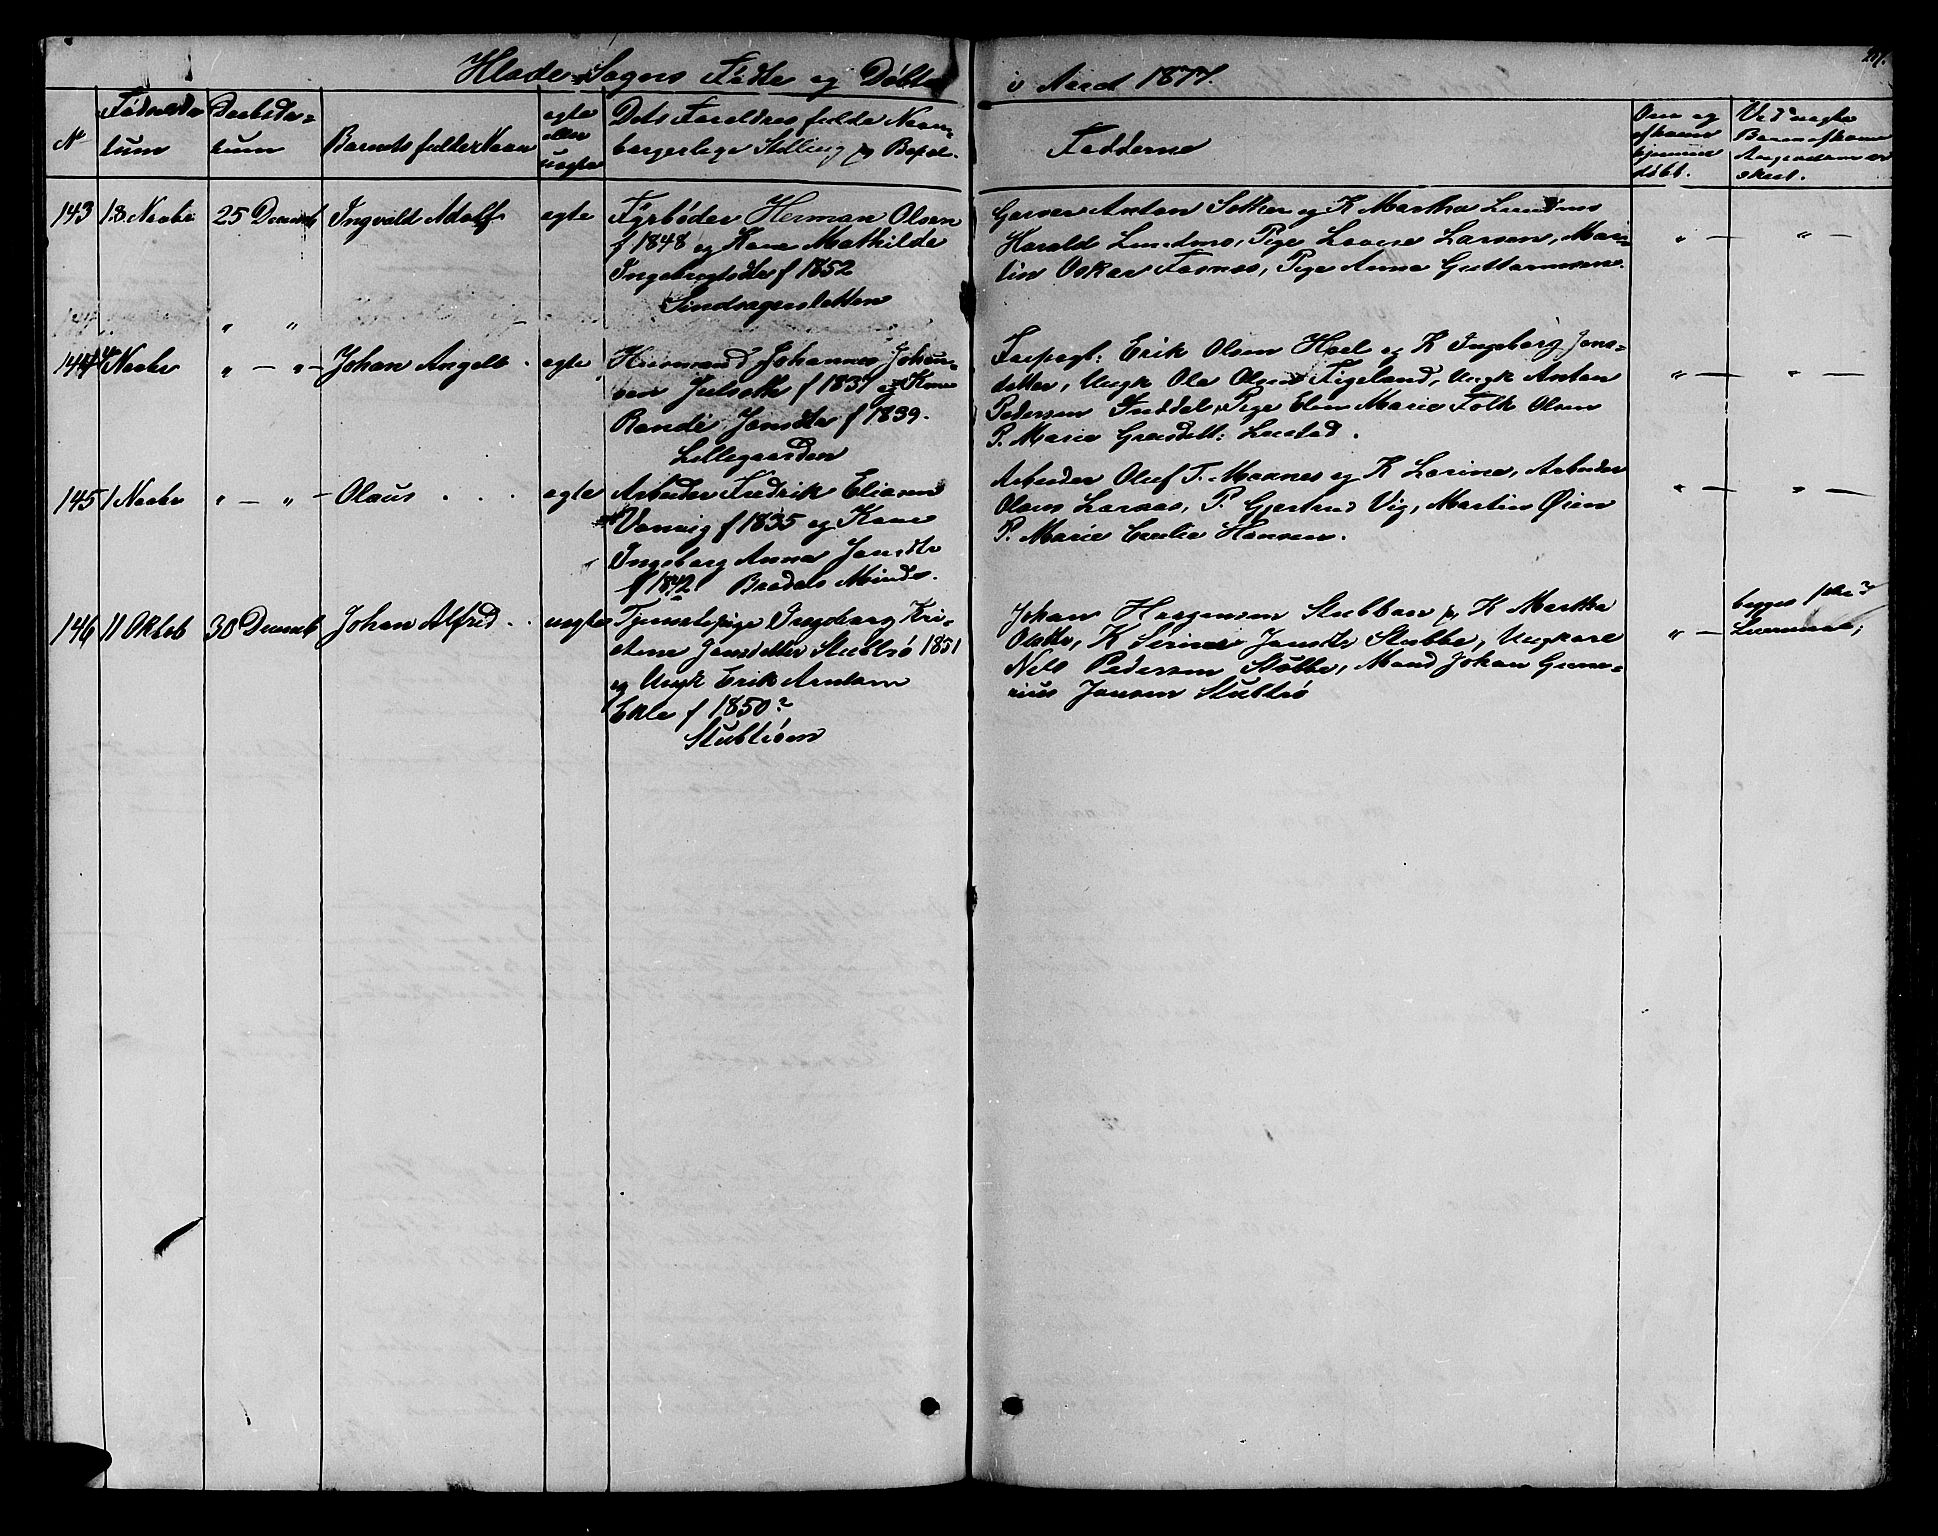 Hlade Sogns Fødte og Døbte i Aaret 1877.
N
Fødselsda
tum
Daabsda=
tum
Barnets fulde Navn
egte
eller
uegte
Dets Foreldres fulde Navn
borgerlige Stilling og Bopel.
Fadderne
Om og
af hvem
hjemme
døbt.
Ved uegte
Børn af hvem
Angivelsen er
skeet.
143
13 Novbr
25 Decemb
Ingvald Adolf
egte
Fyrbøder Herman Olsen
f 1848 og Kone Mathilde
Ingebrigtsdtr f 1852
Anton Solker og K Martha Lundmo
Harald Lundmo, Pige Lovise Larsen, Mar=
tin Oskar Fosnes, Pige Anna Guttormsen.
" —
" —
144
4 Novbr
" — " —
Johan Angelt
egte
Huusmand Johannes Johan=
sen Julseth f 1837 og Kone
Randi Jonsdtr f 1839.
Lillegaarden
Forpagt: Erik Olsen Hoel og K Ingeborg Jons=
datter, Ungk Ole Olsen Figeland, Ungk Anton
Pedersen Inddal, Pige Elen Marie Folk Olsen
P. Marie Lustad.
" —
" —
145
1 Novbr
" — " —
Olaus
egte
Arbeider Fredrik Eliasen
Vanvig f 1835 og Kone
Ingeborg Anna Jonsdtr
f 1842 Bradals Minde.
Arbeider Oluf T. Moxnes og K Lorina, Arbeider
Olaus Loraas, P. Gjertrud Vig, Martin Øien
P. Marie Hansen.
" —
" —
146
11 Oktob
30 Decemb
Johan Alfred
uegte
Tjenestepige Ingeborg Kri=
stine Jonsdatter Stubbrø 1851
og Ungk Erik Arntsen
Ekle f 1850?
Johan Haagensen Stubban og K Martha
Olsdtr, K Serina Jonsdtr Stubbe, Ungkarl
Nels Pedersen Stubbe, Mand Johan Gune=
rius Jonsen Stubbrø
" —
begges 1ste?
Leiermaal;